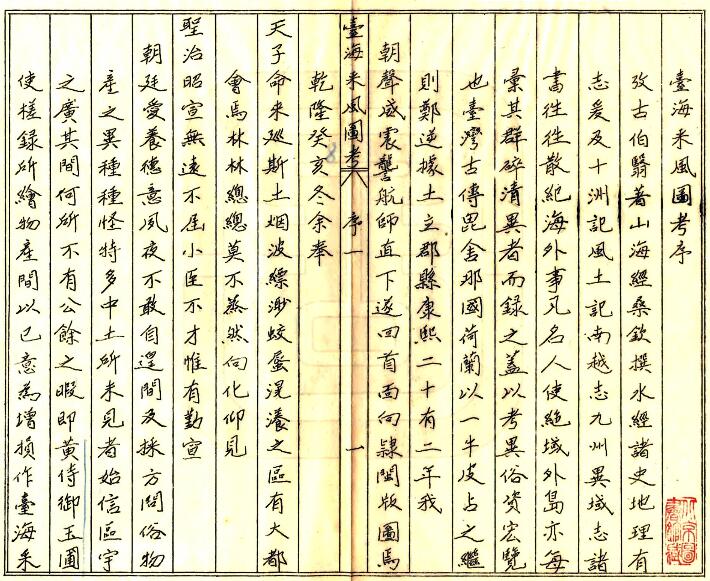 臺海采風圖考序
攷古伯翳著山海經桑欽撰水經諸史地理有
志爰及十洲記風土記南越志九州異域志諸
書往往散紀海外事凡名人使絶域外島亦每
彙其群碎清異者而録之蓋以考異俗資宏覽
也臺灣古傳毘舍耶國荷蘭以一牛皮占之繼
則鄭逆據土立郡縣康熙二十有二年我
朝聲威震讋航師直下遂回首面向隷閩版圖焉
臺海采風圖考 序一 一
乾隆癸亥冬余奉
天子命来廵斯土烟波縹渺蛟蜃滉瀁之區有大都
會焉林林總總莫不蒸然向化仰見
聖治昭宣無遠不届小臣不才惟有勤宣
朝廷愛養德意夙夜不敢自遑間及採方問俗物
産之異種種怪特多中土所未見者始信區宇
之廣其間何所不有公餘之暇即黄侍御玉圃
使槎録所繪物產間以己意為增損作臺海采